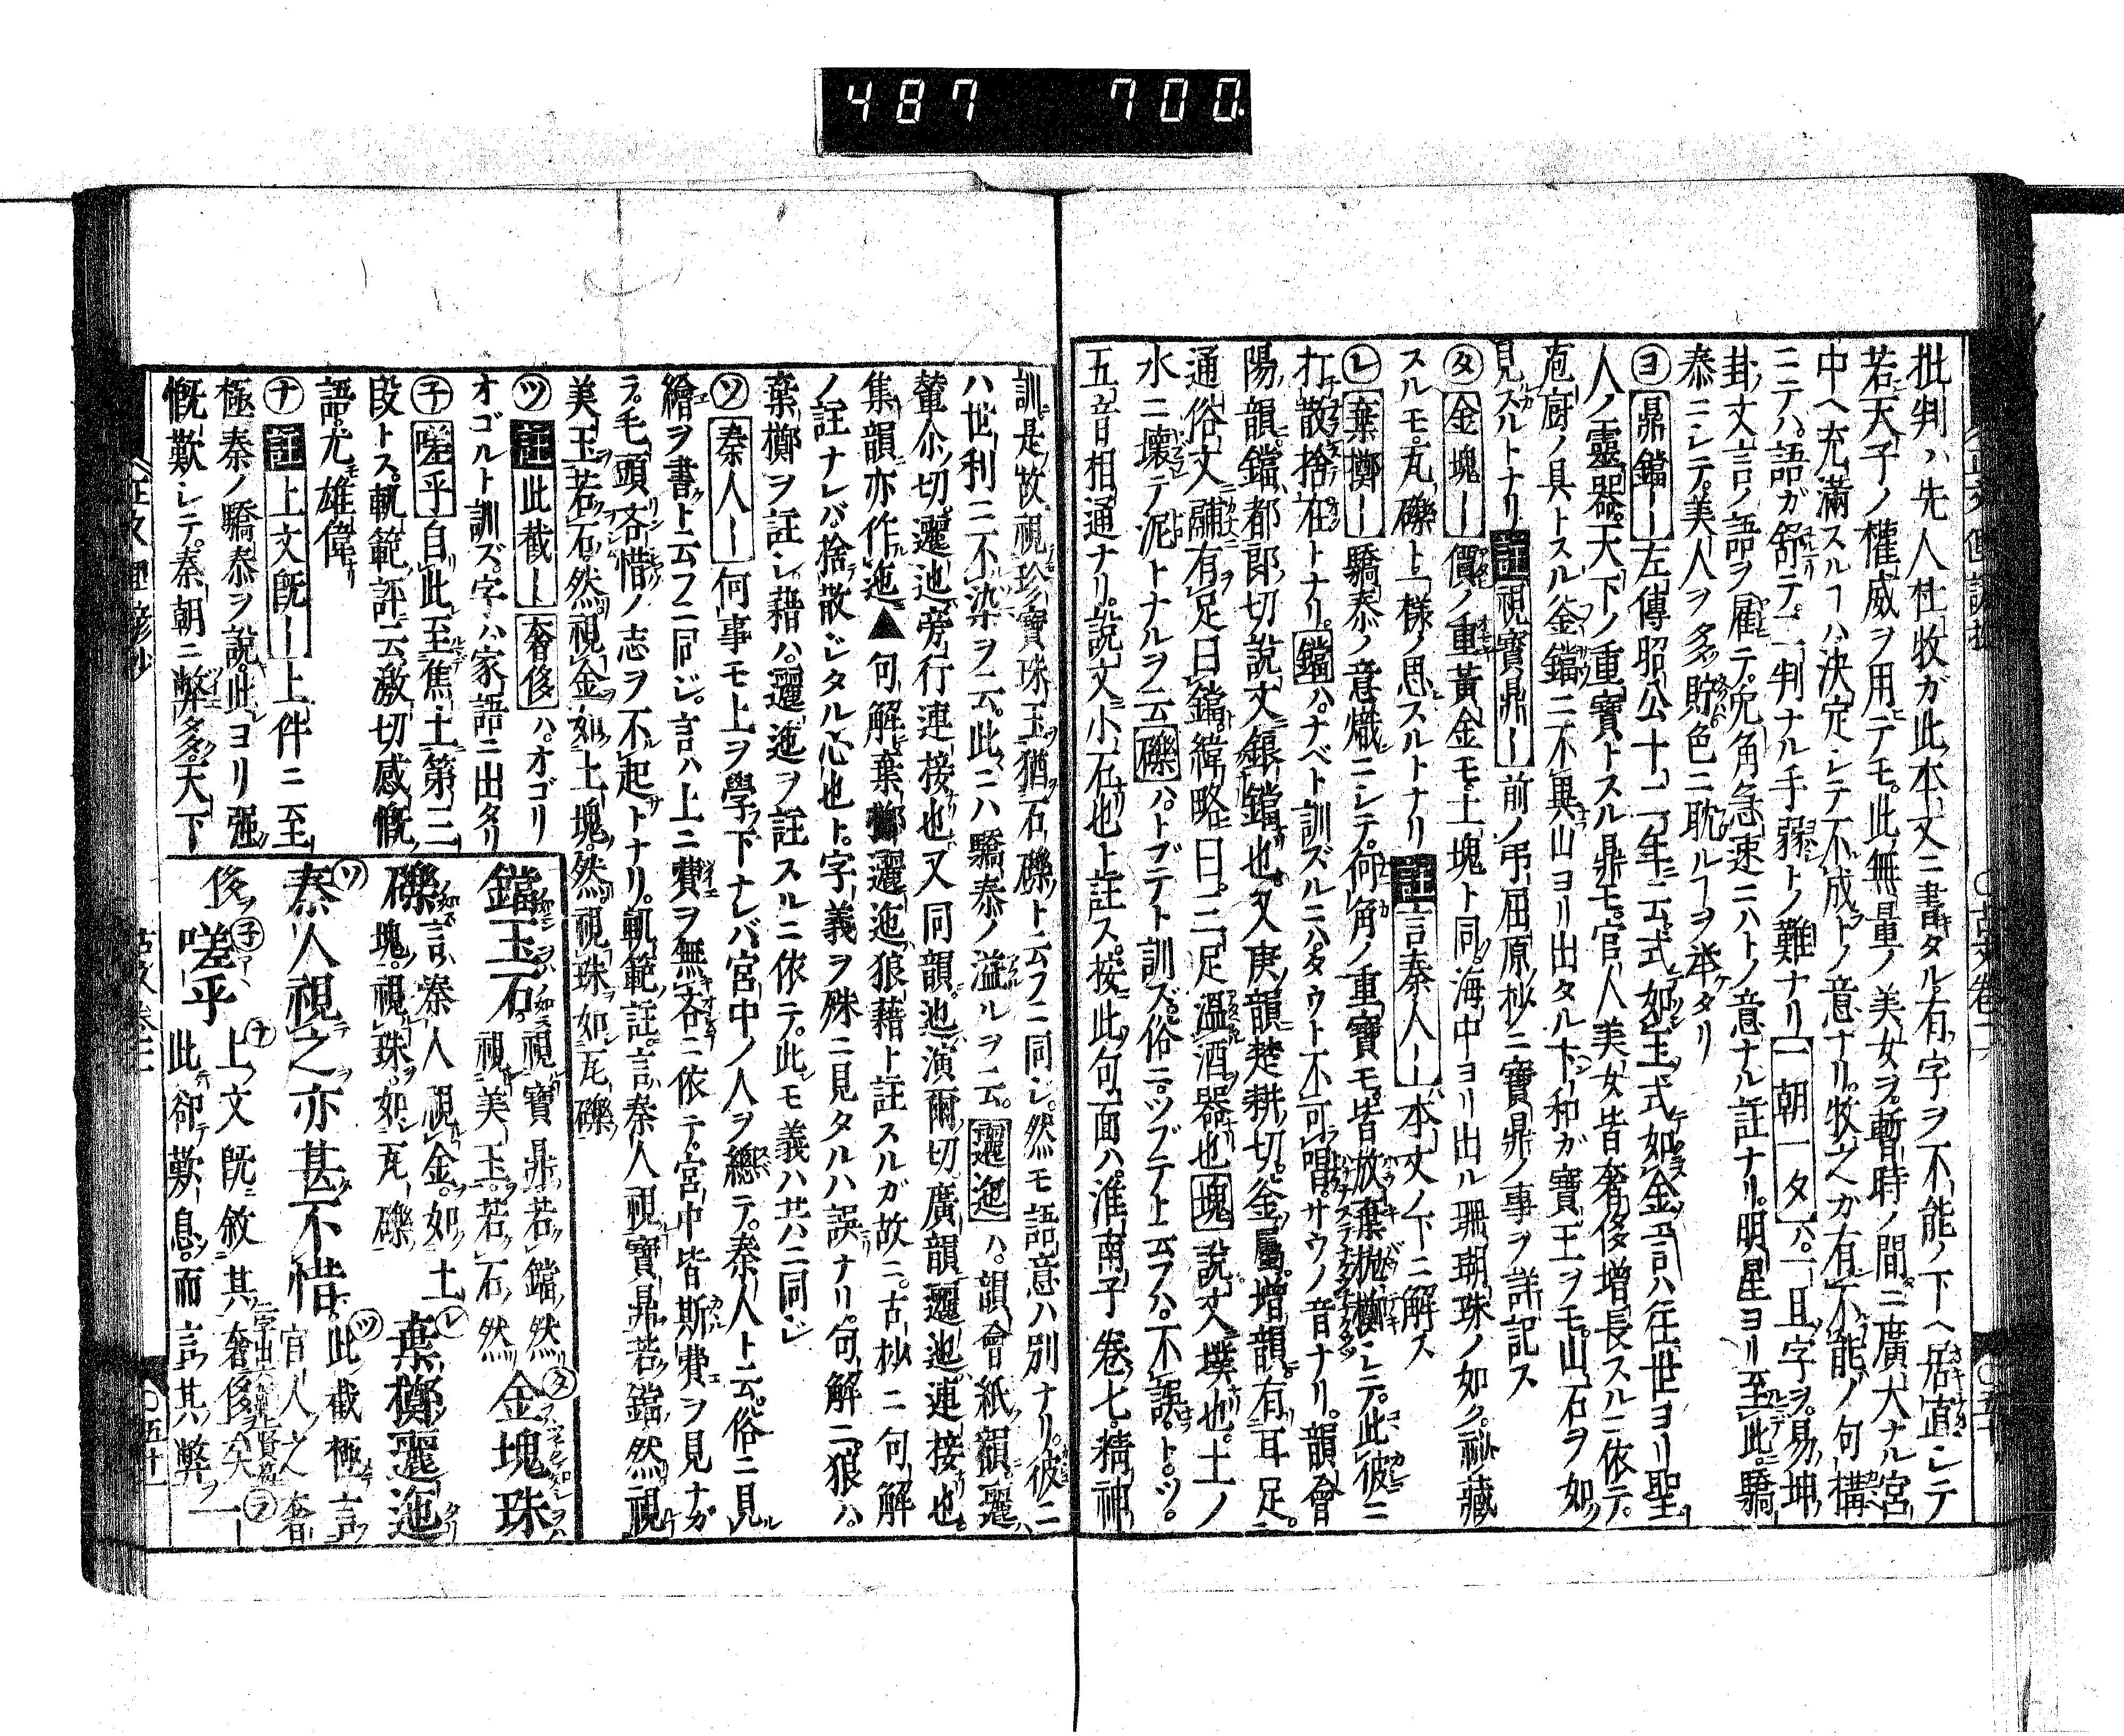 487 700
批判ハ先人杜牧ガ此本文ニ書タル有字ヲ不能ノ下ヘ居宜シテ
若天子ノ權威ヲ用テモ此無量ノ美女ヲ暫時ノ間ニ廣大ナル宮
中ヘ充滿スルヿハ決定シテ不成トノ意ナリ牧之カ有不能ノ句構
ニテハ語ガ舒テ一判ナル手弱トノ難ナリ一朝一夕ハ一旦字ヲ易坤
卦文言ノ語ヲ雇テ兒角急速ニハトノ意ナル註ナリ明星ヨリ至此驕
泰ニシテ美人ヲ多貯色ニ耽ルヿヲ举タリ
ヨ鼎鐺ー左傳昭公十二年ニ云式如玉式如金ヿ言ハ往世ヨリ聖
人ノ靈器天下ノ重寶トスル鼎モ官人美女皆奢侈增長スルニ依テ
庖廚ノ具トスル釜鐺ニ不異山ヨリ出タル卞和ガ寶玉ヲモ山石ヲ如
見スルトナリ註視寶鼎ー前ノ弔屈原抄ニ寶鼎ノ事ヲ詳記ス
タ金塊ー價ノ重黃金モ土塊ト同海中ヨリ出ル珊瑚珠ノ如ク祕藏
スルモ瓦礫ト一樣ノ思スルトナリ註言秦人ー本文ノ下ニ解ス
レ棄擲ー驕泰ノ意熾ニシテ何角ノ重寶モ皆放棄抛擲シテ此彼ニ
打散捨在トナリ鐺ハナベト訓ズルニハタウト不可唱サウノ音ナリ韻會
陽韻鐺都郎切說文銀鐺也又庚韻楚耕切釜屬增韻有耳足
通俗文鬴有足曰鐺緯略曰三足溫酒器也塊說文墣也土ノ
水ニ壞テ泥トナルヲ云礫ハトブテト訓ズ俗ニツブテト云フハ不誤トツ
五音相通ナリ說文小石也ト註ス按此句面ハ淮南子卷七精神
訓是故視珍寶珠玉猶石礫ト云フニ同シ然モ語意ハ別ナリ彼ニ
ハ世利ニ不染ヲ云此ニハ驕泰ノ溢ルヲ云邐迤ハ韻會紙韻邐
輦尒切邐迤旁行連接也又同韻迤演爾切廣韻邐迤連接也
集韻亦作迆▲句解棄擲邐迤狼藉ト註スルガ故ニ古抄ニ句解
ノ註ナレバ捨散シタル心也ト字義ヲ殊ニ見タルハ誤ナリ句解ニ狼ハ
棄擲ヲ註シ藉ハ邐迤ヲ註スルニ依テ此モ義ハ共ニ同シ
ソ秦人ー何事モ上ヲ學下ナレバ宮中ノ人ヲ總テ秦人ト云俗ニ見
繪ヲ書ト云フニ同ジ言ハ上ニ費ヲ無吝ニ依テ宮中皆斯費ヲ見ナガ
ラ毛頭吝惜ノ志ヲ不起トナリ軌範註言秦人視寶鼎若鐺然視
美玉若石然視金如土塊然視珠如瓦礫
ツ註此截ー奢侈ハオゴリ
オゴルト訓ズ字ハ家語ニ出タリ
子嗟乎自此至焦土第二
段トス軌範評云激切感慨
語尤雄偉
ナ註上文旣ー上件ニ至
極秦ノ驕泰ヲ說此ヨリ强
慨歎シテ秦朝ニ弊多天下
鐺玉石視寶鼎若鐺然視美玉若石然金塊珠
礫言秦人視金如土塊視珠如瓦礫棄擲邐迤
秦人視之亦甚不惜此截極言官人之奢
侈嗟乎上文旣敘其奢侈矣此卻歎息而言其弊一